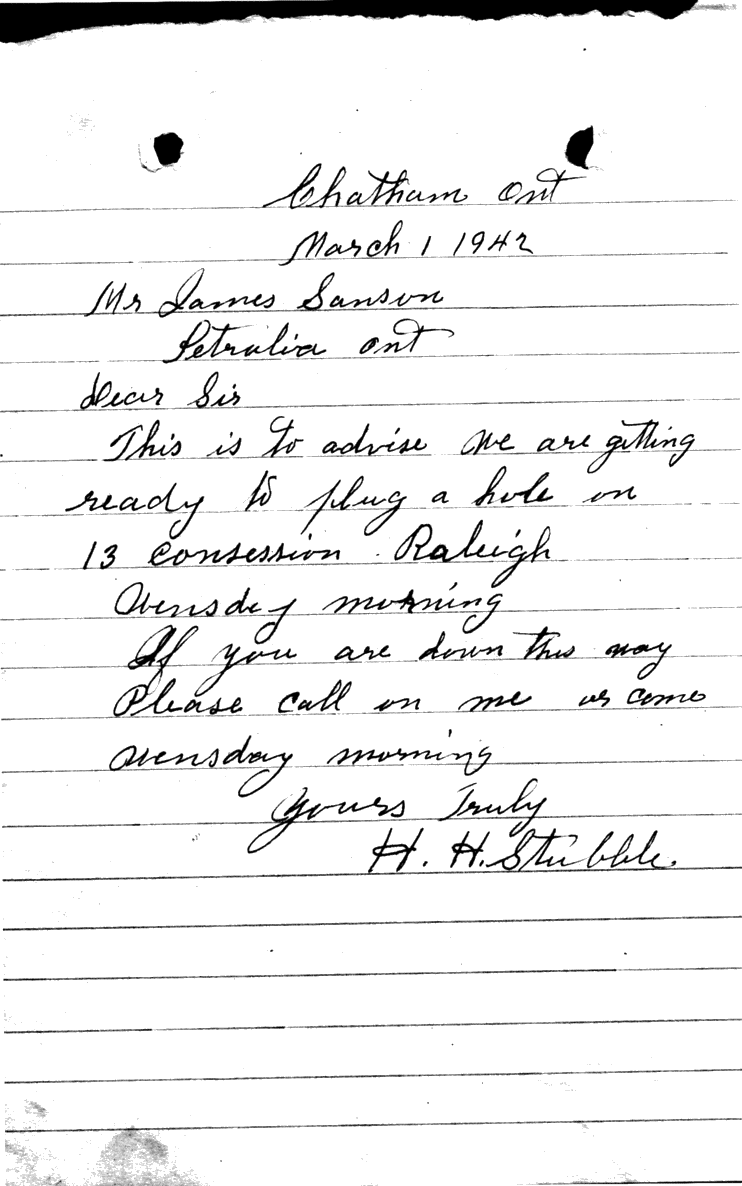 Chatham Ont
March 1 1942
Mr James Sanson
Petralia Ont
Dear Sir
This is to advise We are getting
ready to plug a hole on
13 consession Raleigh
Wensday morning
If you are down this way
Please call on me or come
Wensday morning
Yours Truly
H. H. Stubble.